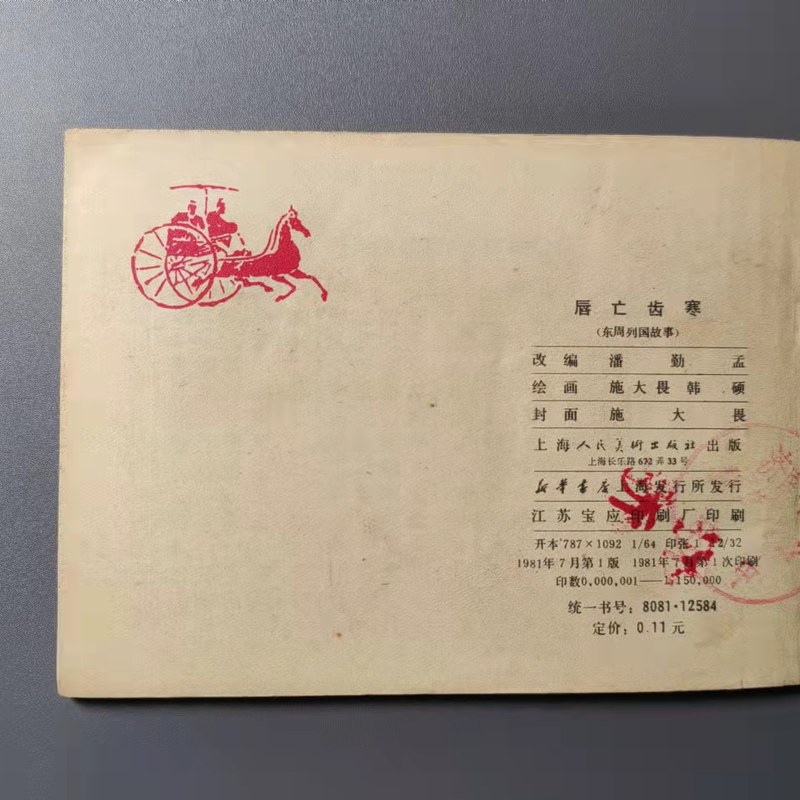 唇亡齿寒
（东周列国故事）
改编 潘勤孟
绘画 施大畏 韩硕
封面 施大畏
上海人民美術出版社 出版
上海长乐路672弄33号
新华書店上海发行所发行
江苏宝应印刷厂印刷
开本787×1092 1/64 印张1 22/32
1981年7月第1版 1981年7月第1次印刷
印数0,000,001——1,150,000
统一书号：8081·12584
定价：0.11元